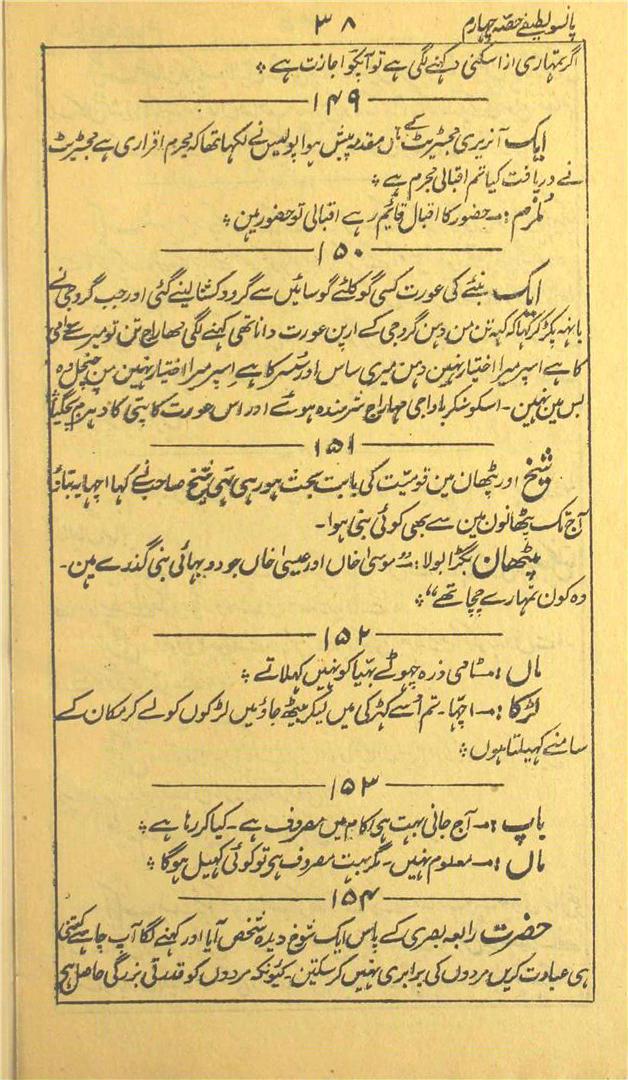 پانسو لطیفے حصہ چہارم
۳۸
اگر تمہاری از اسکنی دکہنے لگی ہے تو آپکو اجازت ہے ؞
۱۴۹
ایک آنریری مجسٹریٹ کے ہاں مقدمہ پیش ہوا پولیس نے لکہا تھا کہ مجرم اقراری ہے مجسٹریٹ
نے دریافت کیا تم اقبالی مجرم ہے ؞
ملزم :۔ حضور کا اقبال قائیم رہے اقبالی تو حضور ہین ؞
۱۵۰
ایک بنئے کی عورت کسی گوکلئے گوسائیں سے گرو دکشا لینے گئی اور جب گرو جی نے
بانہہ پکڑ کر کہا کہ کہہ تن من دہن گرو جی کے ارپن عورت دانا تھی کہنے لگی مہاراج تن تو میرے سوامی
کا ہے اسپر میرا اختیار نہین دہن میری ساس اور سُسر کا ہے اسپر میرا اختیار نہین من چنچل وہ
بس مین نہین ۔ اسکو سنکر باواجی مہاراج شرمندہ ہوئے اور اس عورت کا پتی کا دہرم بچگیا
۱۵۱
شیخ اور پٹھان مین قومیّت کی بابت بحث ہو رہی تہی شیخ صاحب نے کہا اچہا یہ بتاؤ
آج تک پٹھانون مین سے بھی کوئی نبی ہوا ۔
پٹھان بگڑا بولا :۔ موسیٰ خاں اور عیسیٰ خاں جو دو بہائی نبی گندرے ہین ۔
وہ کون تمہارے چچا تھے“ ؞
۱۵۲
ماں :۔ ٹامی ذرہ چھوٹے بہیا کو نہیں کہلاتے ؞
لڑکا :۔ اچھا ۔ تم اُسے کھڑکی میں لیکر بیٹھ جاؤ میں لڑکوں کو لے کر مکان کے
سامنے کہیلتا ہوں ؞
۱۵۳
باپ :۔ آج جانی بہت ہی کام میں مصروف ہے ۔ کیا کر رہا ہے ؞
ماں :۔ معلوم نہیں ۔ مگر بہت مصروف ہی تو کوئی کہیل ہوگا ؞
۱۵۴
حضرت رابعہ بصری کے پاس ایک شوخ دیدہ شخص آیا اور کہنے لگا آپ چاہے کتنی
ہی عبادت کریں مردوں کی برابری نہیں کر سکتین ۔ کیونکہ مردوں کو قدرتی بزرگی حاصل ہے